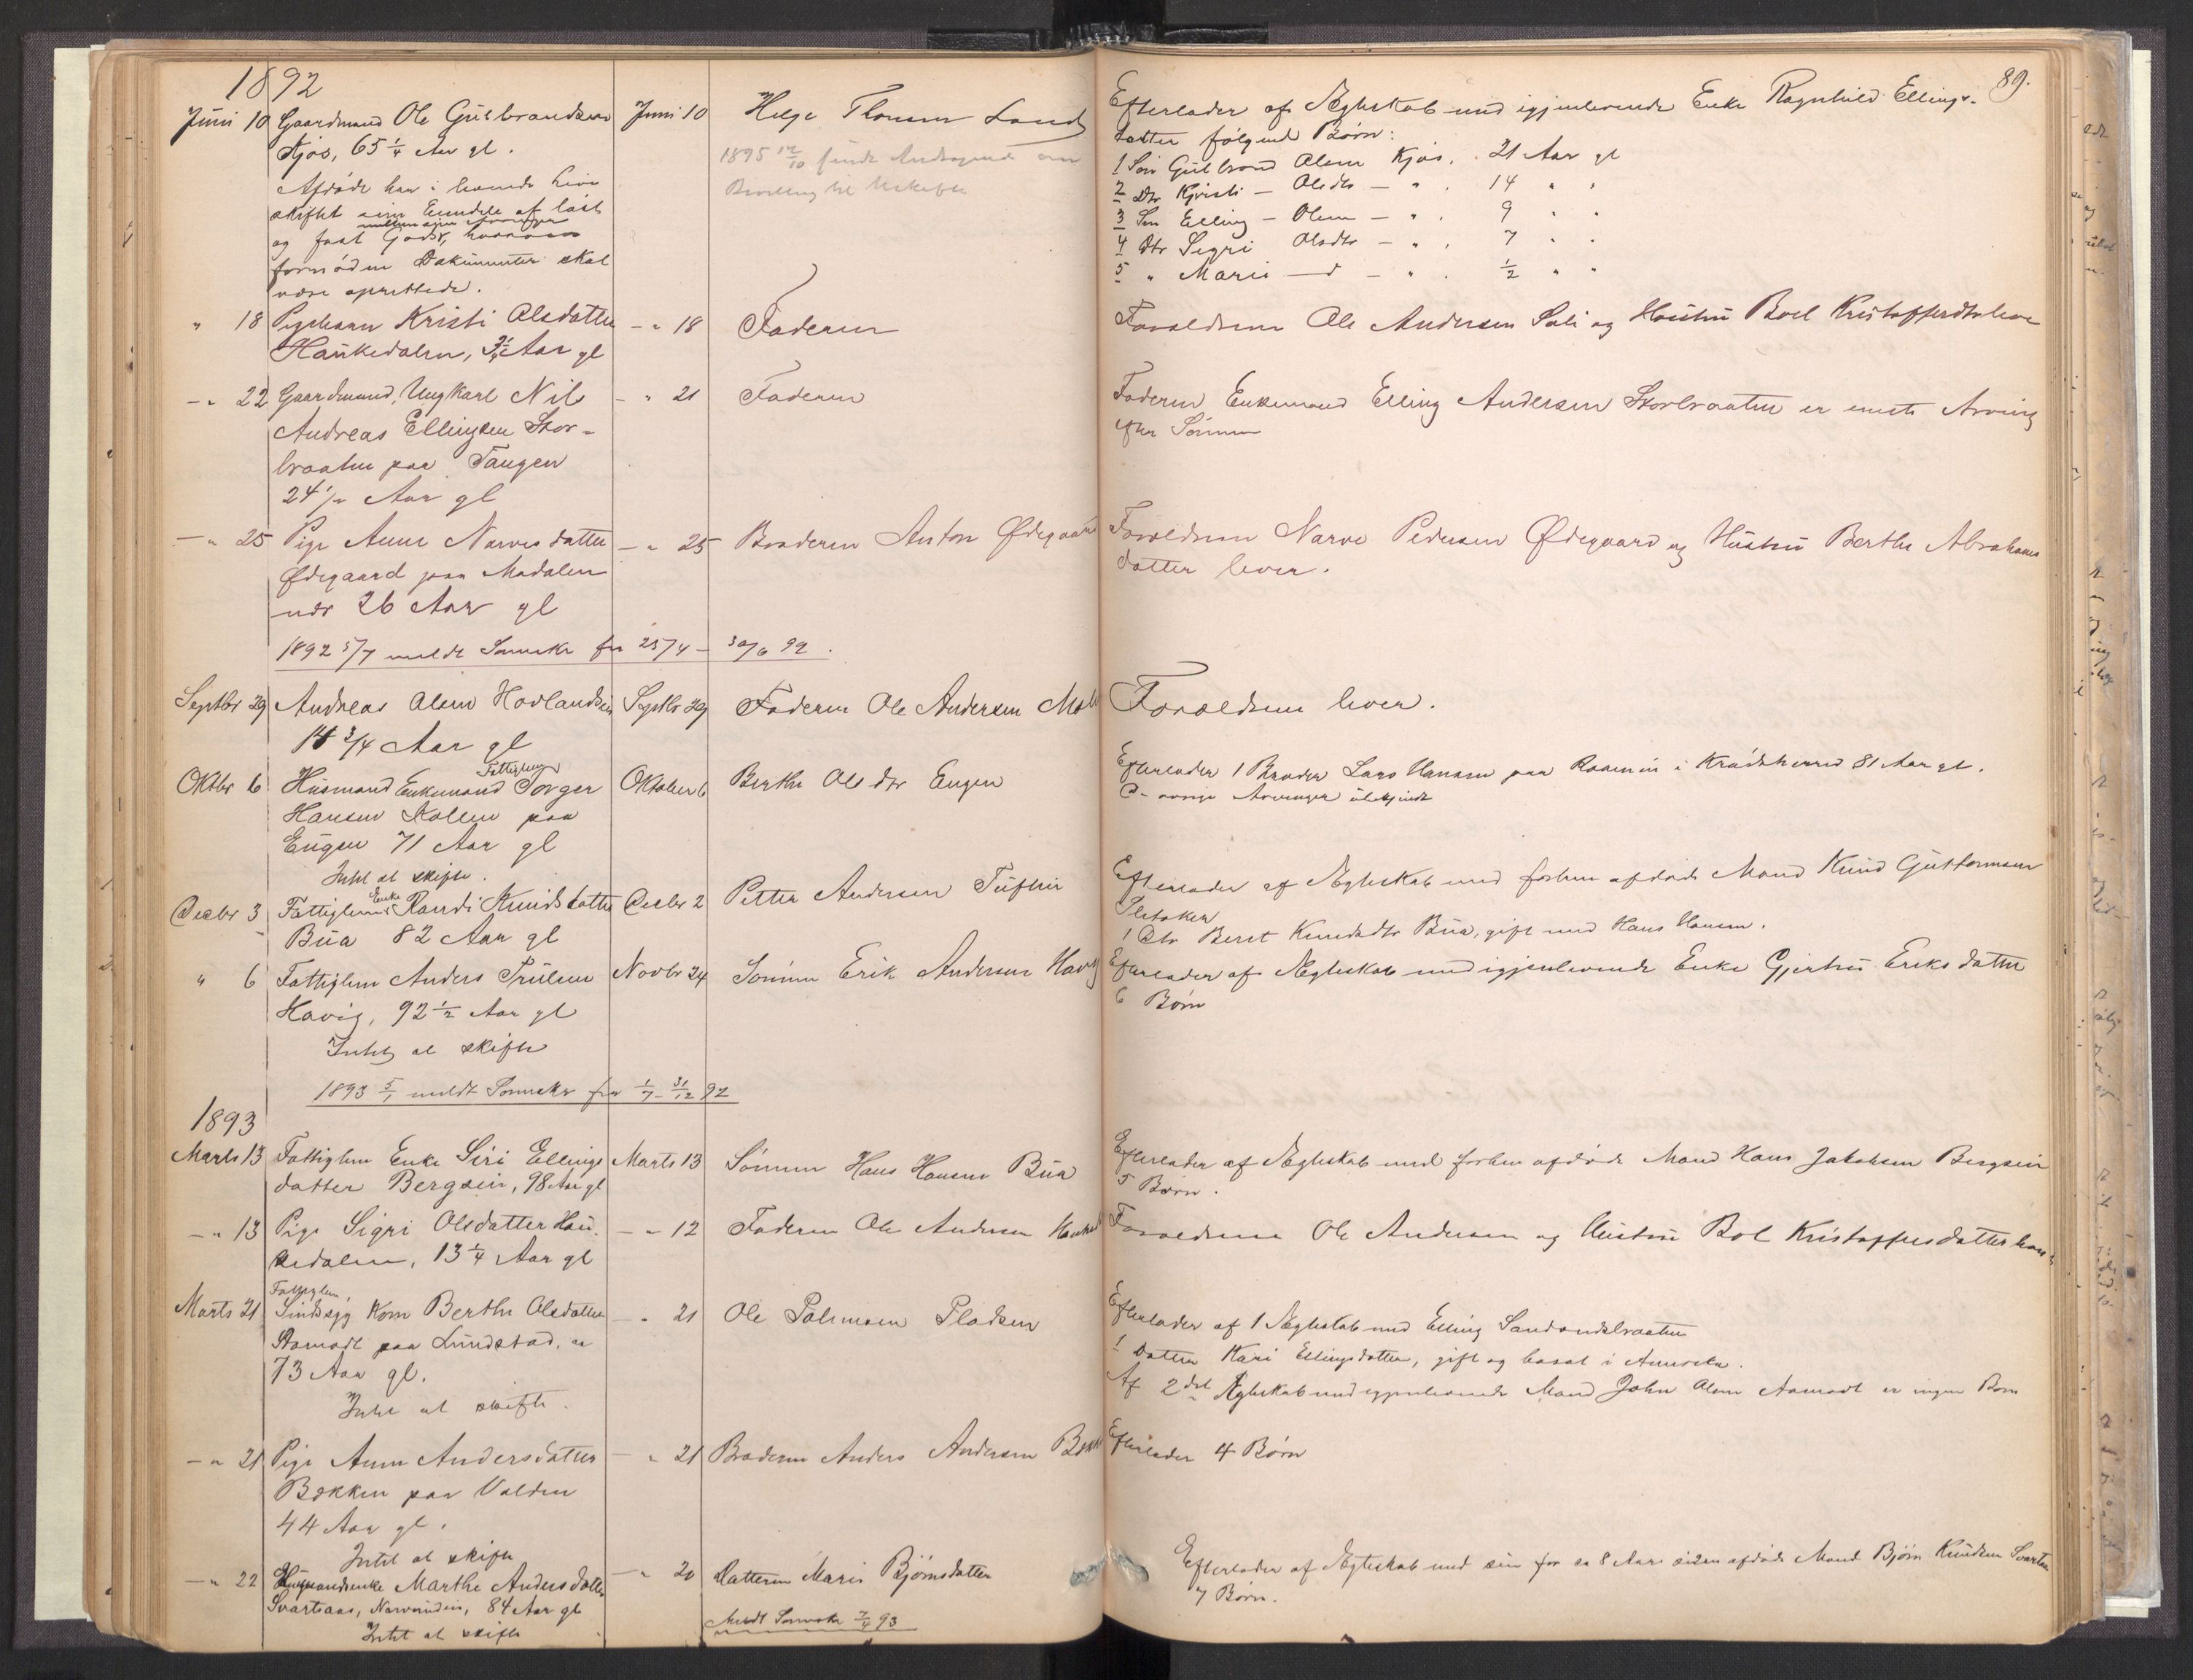 89.
1892
Juni 10 Gaardmand Ole Gulbrandsen Juni 10 Helge Thomsen Efterlader af Ægteskab med igjenlevende Enke Ragnhild Ellings-
Kjøs, 65 1/4 Aar gl. 1895 14/10 datter følgende Børn:
Afdøde har i levende Live Bevilling til 1 Søn Gulbrand Olsen Kjøs. 21 Aar gl
skiftet sin Eiendele af løst 2 Dtr Kjristi - Olsdtr - " . 14 " "
mellem sine Arvinger 3 Søn Elling - Olsen - " . 9 " "
og fast Gods, hvorom 4 Dtr Sigri Olsdtr - " . 7 " "
fornødne Dokumenter skal 5 " Marie - d - " . 1/2 " "
være oprettede.
" 18 Pigebarn Kristi Olsdatter - " 18 Faderen Forældrene Ole Andersen Sali og Hustru Boel Kristoffersdtr lever
Haukedalen, Aar gl
- " 22 Gaardmand, Ungkarl Nils - " 21 Faderen Faderen Enkemand Elling Andersen Storbraaten er eneste Arving
Andreas Ellingsen Stor- efter Sønnen
braaten paa Tangen
24 1/2 Aar gl
- " 25 Pige Anne Narvesdatter - " 25 Broderen Anton Ødegaard Forældrene Narve Pedersen Ødegaard og Hustru Berthe Abrahams
Ødegaard paa Modalen datter lever.
nær 26 Aar gl
1892 5/7 meldt Sorensk. fra 25/4 - 30/6 92.
Septbr 29 Andreas Olsen Hovlandsen Septbr 29 Faderen Ole Andersen Forældrene lever.
14 3/4 Aar gl
Oktbr 6 Husmand Enkemand Fattiglem Torger Oktober 6 Berthe Olsdtr Engen Efterlader 1 Broder Lars Hansen paa Raamin i Krødsherred 81 Aar gl.
Hansen Kollen paa D- øvrige Arvinger ubekjendt
Engen 71 Aar gl
Intet at skifte.
Decbr 3 Fattiglem Enke Randi Knudsdatter Decbr 2 Petter Andersen Tufhin Efterlader af Ægteskab med forhen afdøde Mand Knud Guttormsen
Bua 82 Aar gl Plastoken
1 Dtr Beret Knudsdtr Bua, gift med Hans Hansen.
" 6 Fattiglem Anders Trulsen Novbr 24 Sønnen Erik Andersen Havig Efterlader af Ægteskab med igjenlevende Enke Gjertru Eriksdatter
Havig, 92 1/2 Aar gl 6 Børn
Intet at skifte
1893 5/1 meldt Sorensk. fra 1/7 - 31/12 92
1893
Marts 13 Fattiglem Enke Siri Ellings Marts 13 Sønnen Hans Hansen Bua Efterlader af Ægteskab med forhen afdøde Mand Hans Jakobsen Bergsein
datter Bergsein, 98 Aar gl 5 Børn.
- " 13 Pige Sigri Olsdatter Hau- - " 12 Faderen Ole Andersen Forældrene Ole Andersen og Hustru Bol Kristoffersdatter lever
kedalen, 13 1/4 Aar gl
Marts 21 Fattiglem, - " 21 Ole Palmesen Pladsen Efterlader af 1 Ægteskab med Elling Sandandsbraaten
Sindssyg Kone Berthe Olsdatter 1 Datter Kari Ellingsdatter, gift og bosat i Amerika.
Aamodt paa Lundstad, Af 2det Ægteskab med igjenlevende Mand John Olsen Aamodt er ingen Børn
73 Aar gl.
Intet at skifte.
- " 21 Pige Anne Andersdatter - " 21 Broderen Anders Andersen Efterlader 4 Børn
Bækken paa Volden
44 Aar gl.
Intet at skifte
- " 22 Husmandsenke Marthe Andersdatter - " 20 Datteren Maris Bjørnsdatter Efterlader af Ægteskab med sin for ca 8 Aar siden afdøde Mand Bjørn Knudsen
Svartaas, 84 Aar gl 7 Børn.
Intet at skifte Meldt Sorensk. 7/4 93